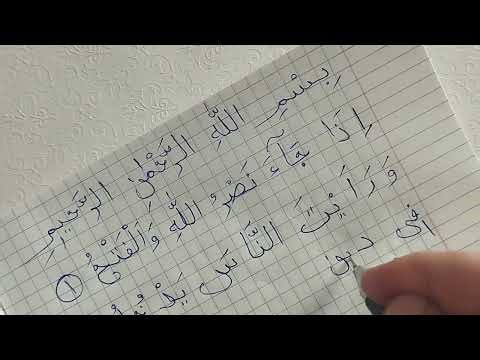 بِسْمِ اللَّهِ الرَّحْمٰنِ الرَّحِيمِ
إِذَا جَآءَ نَصْرُ اللَّهِ وَالْفَتْحُ ١
وَرَاَيْتَ النَّاسَ
فِى دين